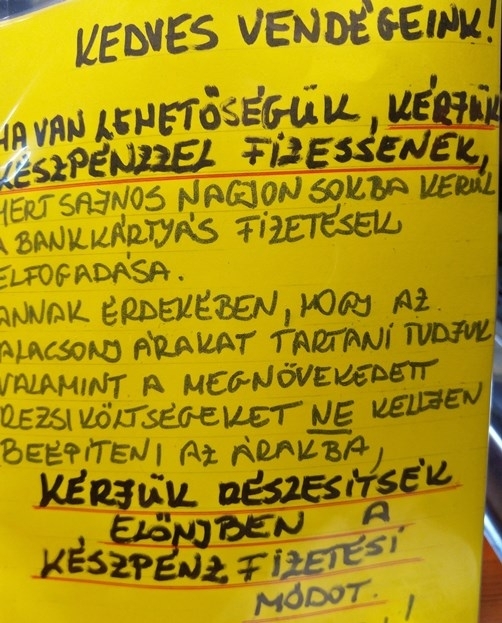 KEDVES VENDÉGEINK!
HA VAN LEHETŐSÉGÜK, KÉRJÜK
KÉSZPÉNZZEL FIZESSENEK,
MERT SAJNOS NAGYON SOKBA KERÜL
A BANKKÁRTYÁS FIZETÉSEK
ELFOGADÁSA.
ANNAK ÉRDEKÉBEN, HOGY AZ
ALACSONY ÁRAKAT TARTANI TUDJUK
VALAMINT A MEGNÖVEKEDETT
REZSIKÖLTSÉGEKET NE KELLJEN
BEÉPÍTENI AZ ÁRAKBA,
KÉRJÜK RÉSZESÍTSÉK
ELŐNYBEN A
KÉSZPÉNZ FIZETÉSI
MÓDOT.